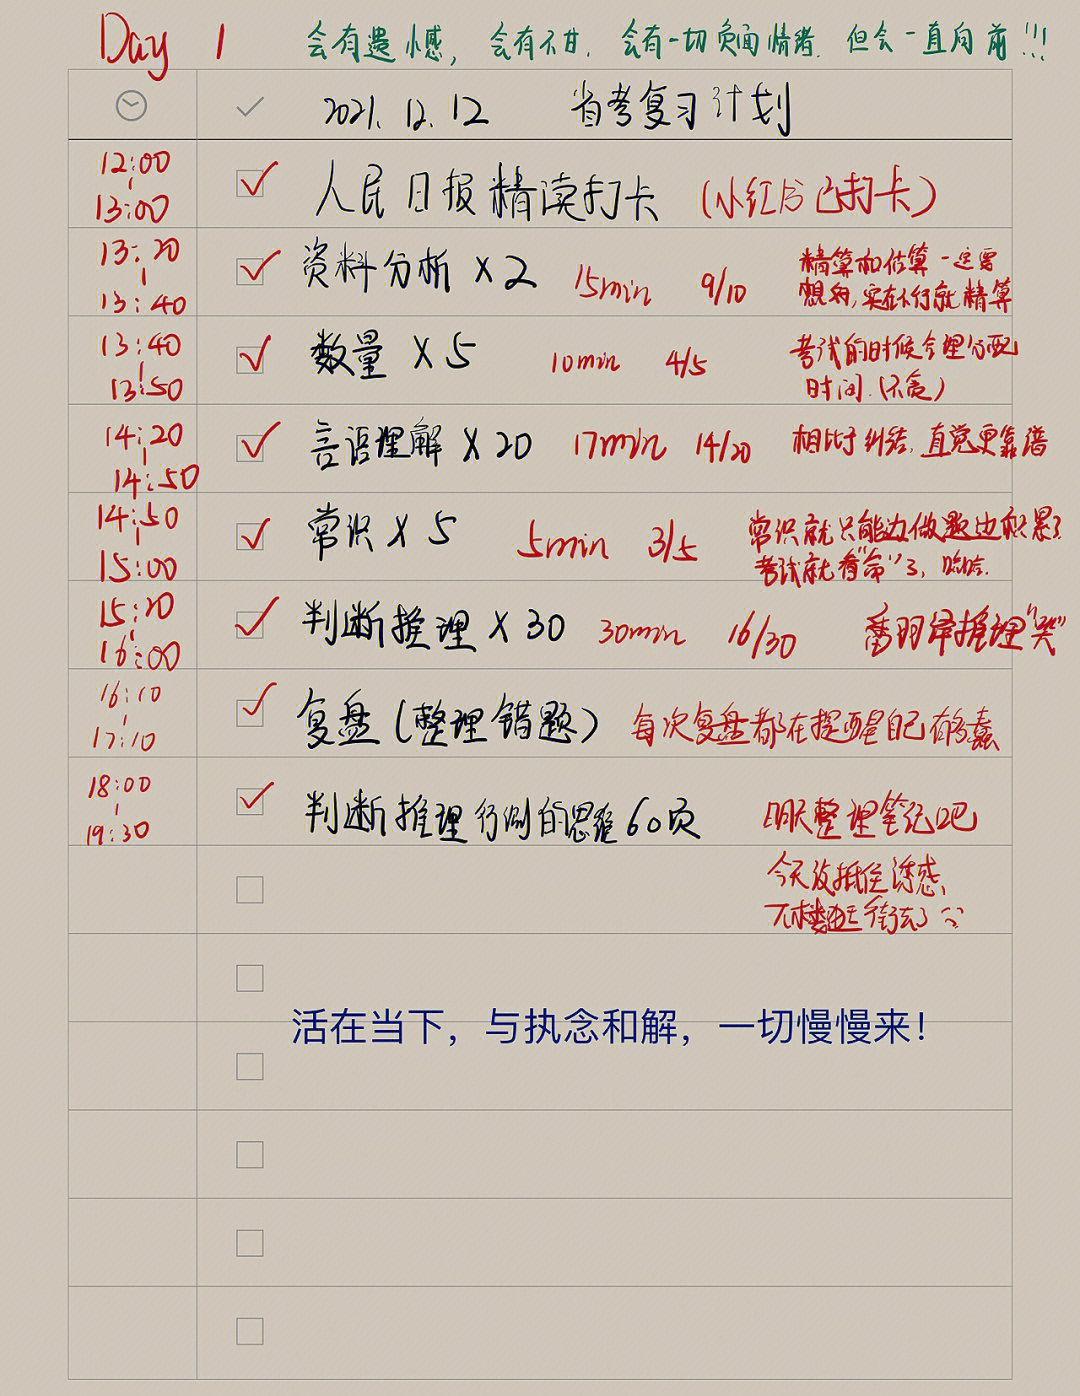 Day 1 会有遗憾, 会有不甘. 会有一切负面情绪. 但会一直向前!!!
2021.12.12 省考复习计划
12:00
13:00
人民日报精读打卡 (小红书已打卡)
13:20
13:40
资料分析×2 15min 9/10
精算和估算一定要
想好, 实在不行就精算
13:40
13:50
数量×5 10min 4/5
考试的时候合理分配
时间.(不贪)
14:20
14:50
言语理解×20 17min 14/20 相比于纠结, 直觉更靠谱
14:50
15:00
常识×5 5min 3/5
常识就只能边做题边积累了
考试就看"命"了, 哈哈.
15:20
16:00
判断推理×30 30min 16/30 推理"哭"
16:10
17:10
复盘(整理错题) 每次复盘都在提醒自己有多蠢
18:00
19:30
判断推理行测的思维60页 明天整理笔记吧
今天没抵住诱惑,
下楼逛街去了
活在当下，与执念和解，一切慢慢来！